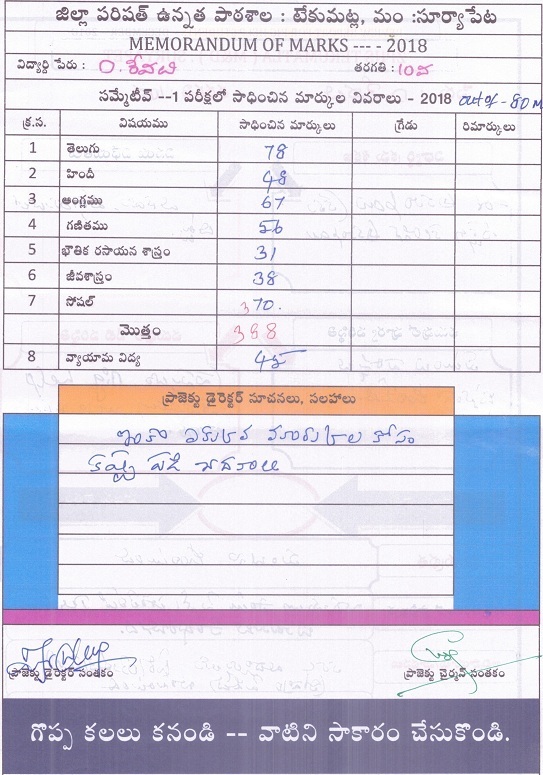 జిల్లా పరిషత్ ఉన్నత పాఠశాల : టేకుమట్ల, మం :సూర్యాపేట
MEMORANDUM OF MARKS --- - 2018
విద్యార్థి పేరు : O. తరగతి : 10వ
సమ్మేటీవ్ --1 పరీక్షలో సాధించిన మార్కుల వివరాలు - 2018 out of - 80 M
క్ర.స. విషయము సాధించిన మార్కులు గ్రేడు రిమార్కులు
1 తెలుగు 78
2 హిందీ 48
3 ఆంగ్లము 67
4 గణితము 56
5 భౌతిక రసాయన శాస్త్రం 31
6 జీవశాస్త్రం 38
7 సోషల్ 70.
మొత్తం 388
8 వ్యాయామ విద్య 45
ప్రాజెక్టు డైరెక్టర్ సూచనలు, సలహాలు
ఇంకా ఎక్కువ మార్కుల కోసం
కష్ట పడి చదవాలి
ప్రాజెక్టు డైరెక్టర్ సంతకం ప్రాజెక్టు చైర్మన్ సంతకం
గొప్ప కలలు కనండి -- వాటిని సాకారం చేసుకొండి.